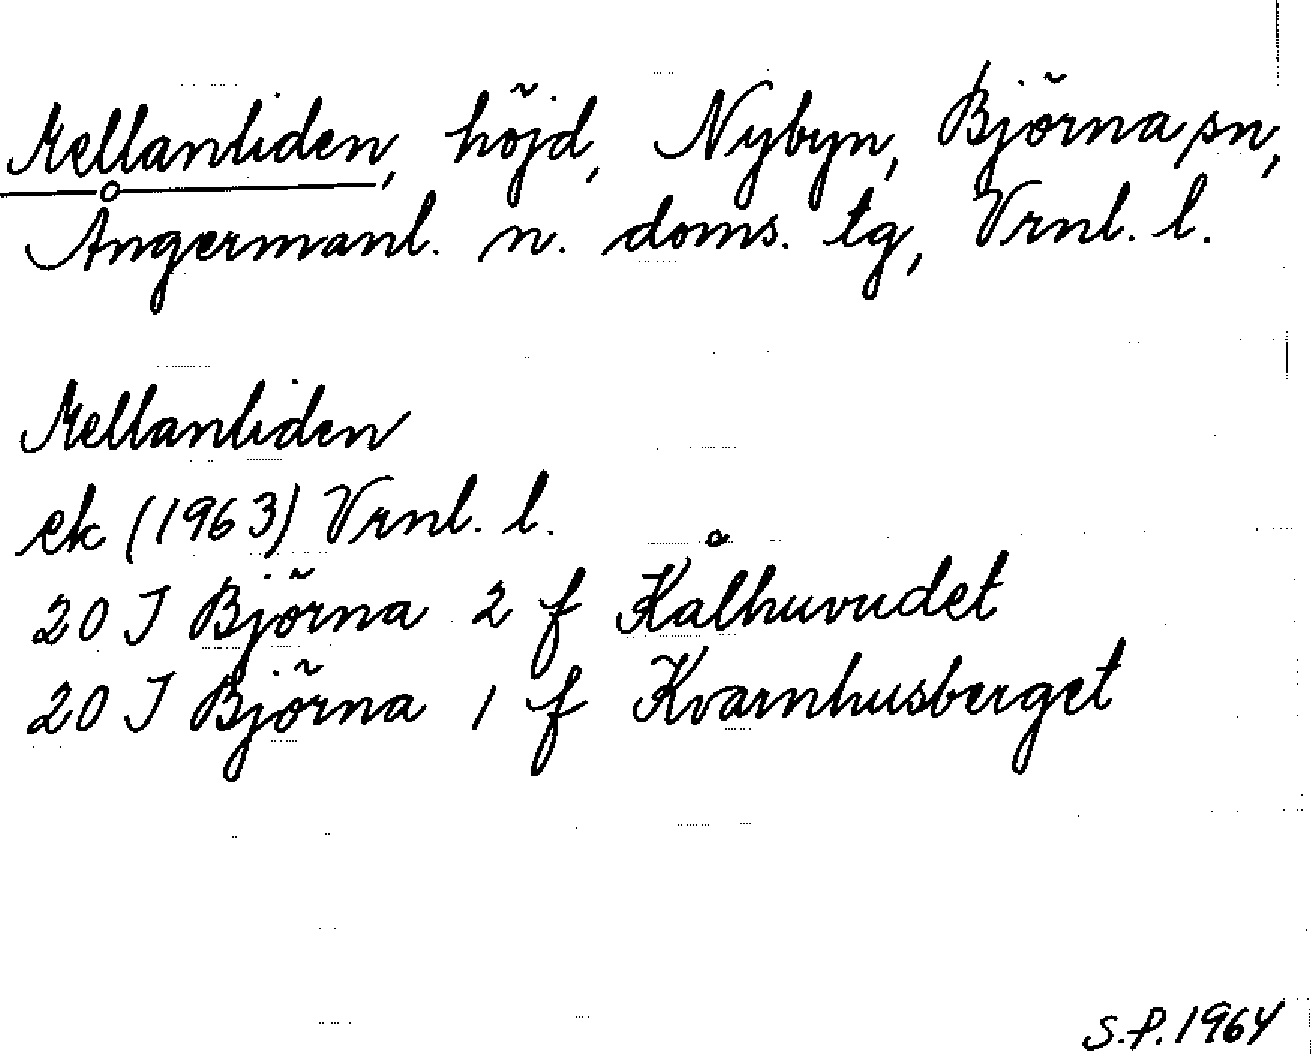 Mellanliden, höjd, Nybyn, Björna sn,
Ångermanl. n. doms. tg, Vrnl. l.
Mellanliden
ek (1963) Vrnl. l.
20 J Björna 2 f Kålhuvudet
20 J Björna 1 f Kvarnhusberget
S.P. 1964